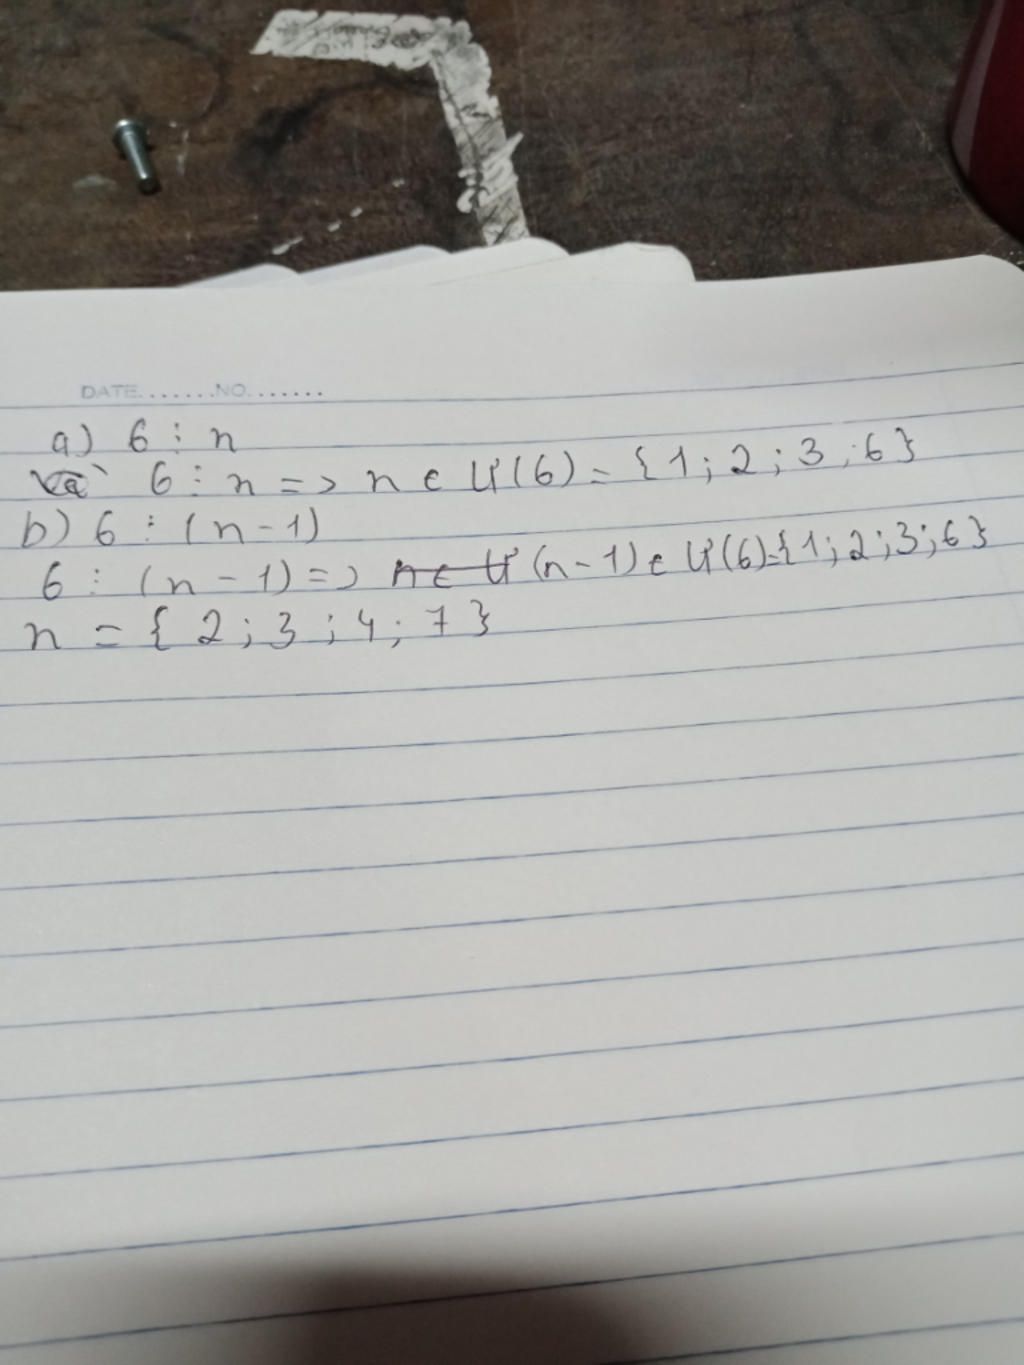 DATE.......NO.......
a) 6 ⋮ n
6 ⋮ n => n ∈ Ư(6) = {1; 2; 3; 6}
b) 6 ⋮ (n - 1)
6 ⋮ (n - 1) => n ∈ Ư (n - 1) ∈ Ư(6)={1; 2; 3; 6}
n = {2; 3; 4; 7}